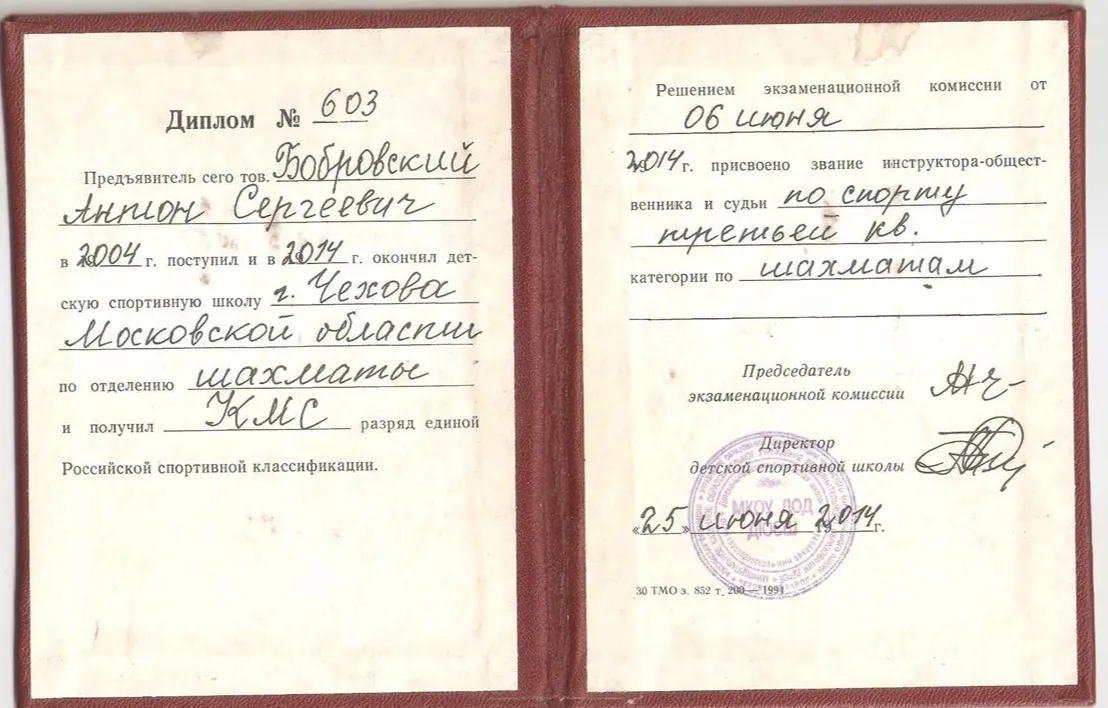 Диплом № 603
Предъявитель сего тов. Бобровский
Антон Сергеевич
в 2004 г. поступил и в 2014 г. окончил дет-
скую спортивную школу г. Чехова
Московской области
по отделению шахматы
и получил КМС разряд единой
Российской спортивной классификации.
Решением экзаменационной комиссии от
06 июня
2014 г. присвоено звание инструктора-общест-
венника и судьи по спорту
третьей кв.
категории по шахматам
Председатель
экзаменационной комиссии
Директор
детской спортивной школы
МКОУ ДОД
ДЮСШ
«25» июня 2014 г.
30 ТМО з. 852 т. 200 — 1991